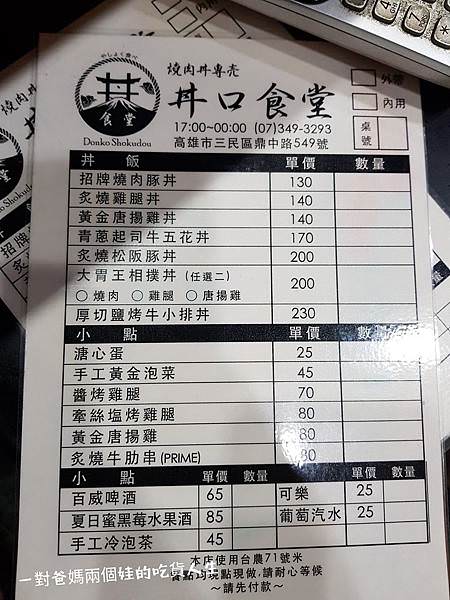 やしょく喰べ
井
食堂
Donko Shokudou
燒肉丼專売
丼口食堂
17:00~00:00 (07)349-3293
高雄市三民區鼎中路549號
外帶
內用
桌號
丼 飯 單價 數量
招牌燒肉豚丼 130
炙燒雞腿丼 140
黃金唐揚雞丼 140
青蔥起司牛五花丼 170
炙燒松阪豚丼 200
大胃王相撲丼 (任選二) 200
○燒肉 ○雞腿 ○唐揚雞
厚切鹽烤牛小排丼 230
小 點 單價 數量
溏心蛋 25
手工黃金泡菜 45
醬烤雞腿 70
牽絲塩烤雞腿 80
黃金唐揚雞 80
炙燒牛肋串(PRIME) 80
小 點 單價 數量 單價 數量
百威啤酒 65 可樂 25
夏日蜜黑莓水果酒 85 葡萄汽水 25
手工冷泡茶 45
本店使用台農71號米
餐點均現點現做,請耐心等候
~請先付款~
一對爸媽兩個娃的吃貨人生